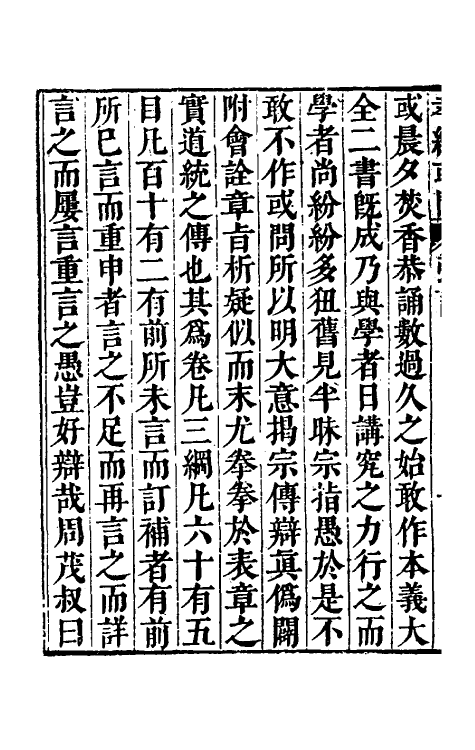 或晨夕焚香恭誦數過久之始敢作本義大
全二書旣成乃與學者日講究之力行之而
學者尚紛紛多狃舊見半昧宗指愚於是不
敢不作或問所以明大意揭宗傳辯眞僞闢
附會詮章㫖析疑似而末尤拳拳於表章之
實道統之傳也其爲卷凡三綱凡六十有五
目凡百十有二有前所未言而訂補者有前
所已言而重申者言之不足而再言之而詳
言之而屢言重言之愚豈好辯哉周茂叔曰